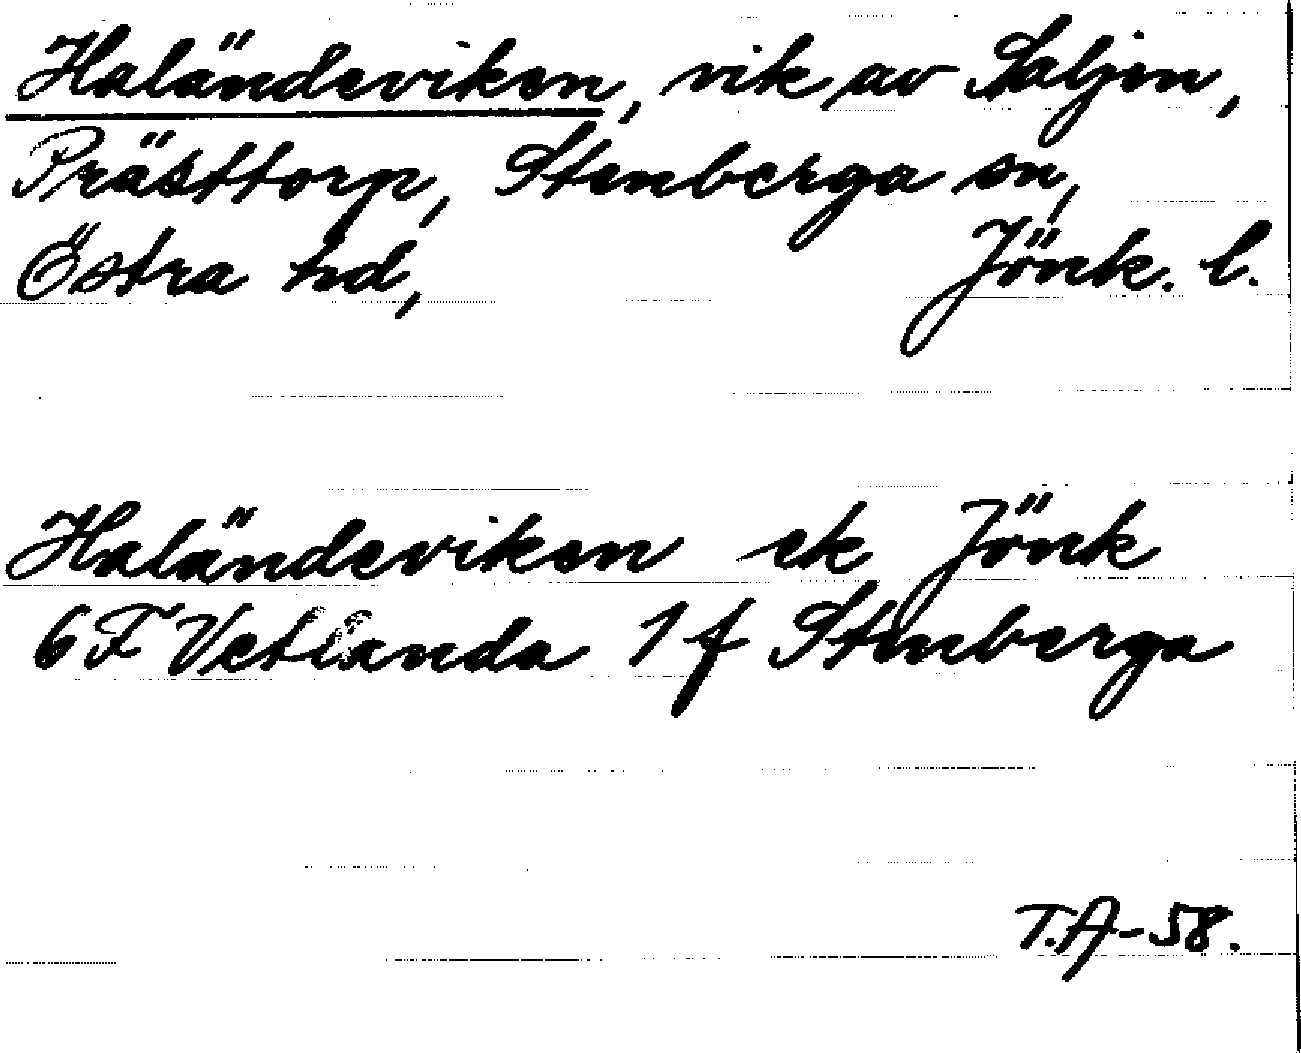 Haländeviken, vik av Saljen,
Prästtorp, Stenberga sn,
Östra hd, Jönk. l.
Haländeviken ek Jönk
6F Vetlanda 1f Stenberga
T.A-58.